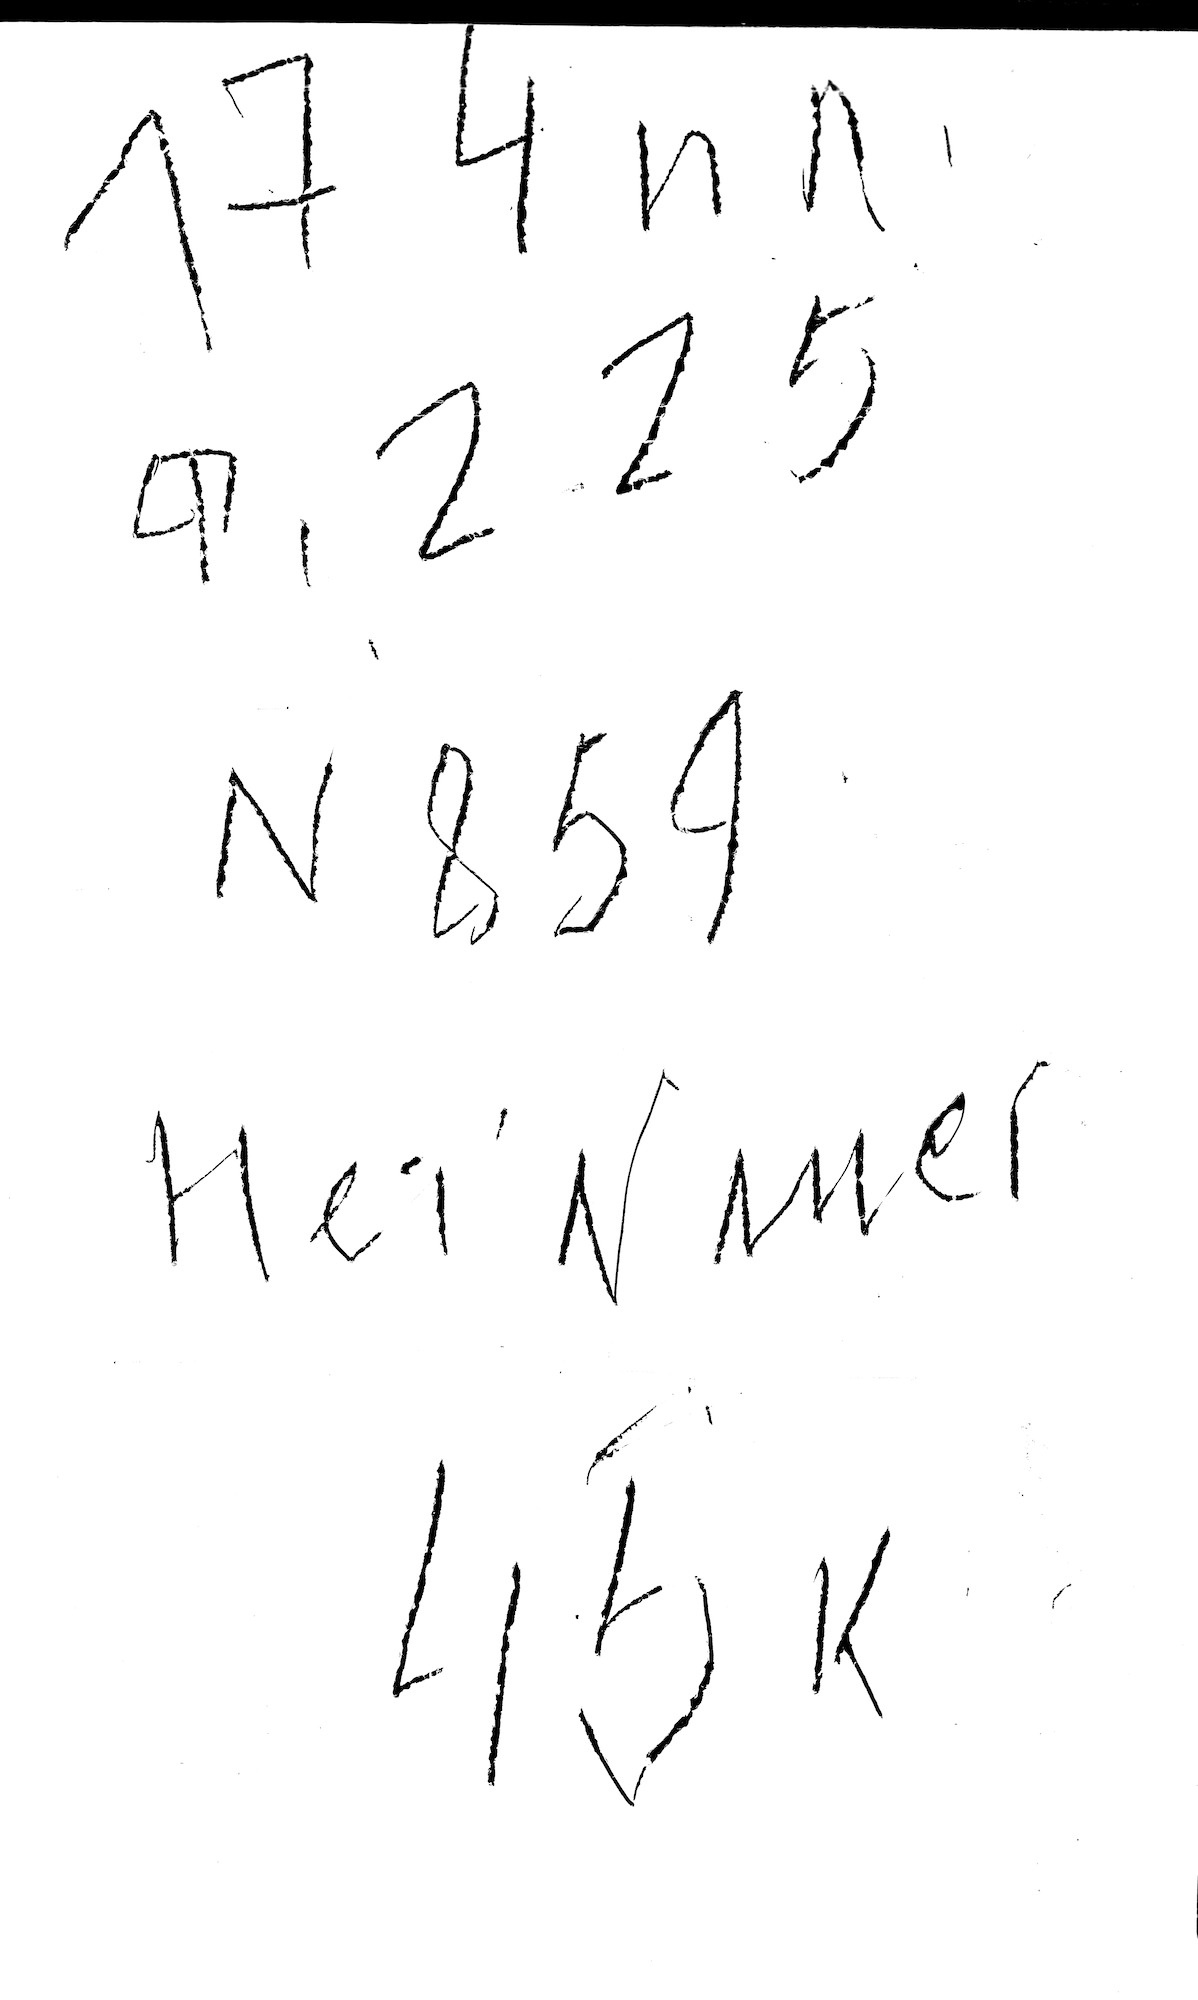 174 nn
φ. 225
N 859
HeiNmer
45 K